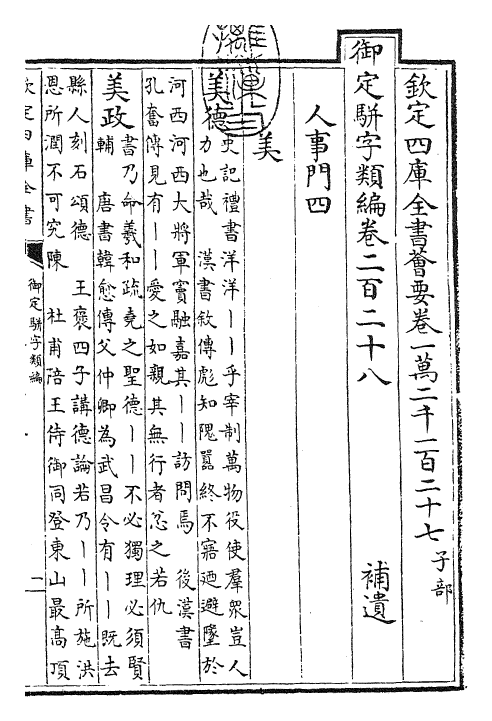 欽定四庫全書薈要卷一萬二千一百二十七子部
御定駢字類編卷二百二十八
補遺
人事門四
美
美德史記禮書洋洋丨丨乎宰制萬物役使羣衆豈人
力也哉 漢書敘傳彪知隗囂終不寤迺避墜於
河西河西大將軍竇融嘉其丨丨訪問焉 後漢書
孔奮傳見有丨丨愛之如親其無行者忿之若仇
美政書乃命羲和疏堯之聖德丨丨不必獨理必須賢
輔 唐書韓愈傳父仲卿為武昌令有丨丨既去
縣人刻石頌德 王褒四子講德論若乃丨丨所施洪
恩所潤不可究陳 杜甫陪王侍御同登東山最高頂
欽定四庫全書
御定駢字類編
一